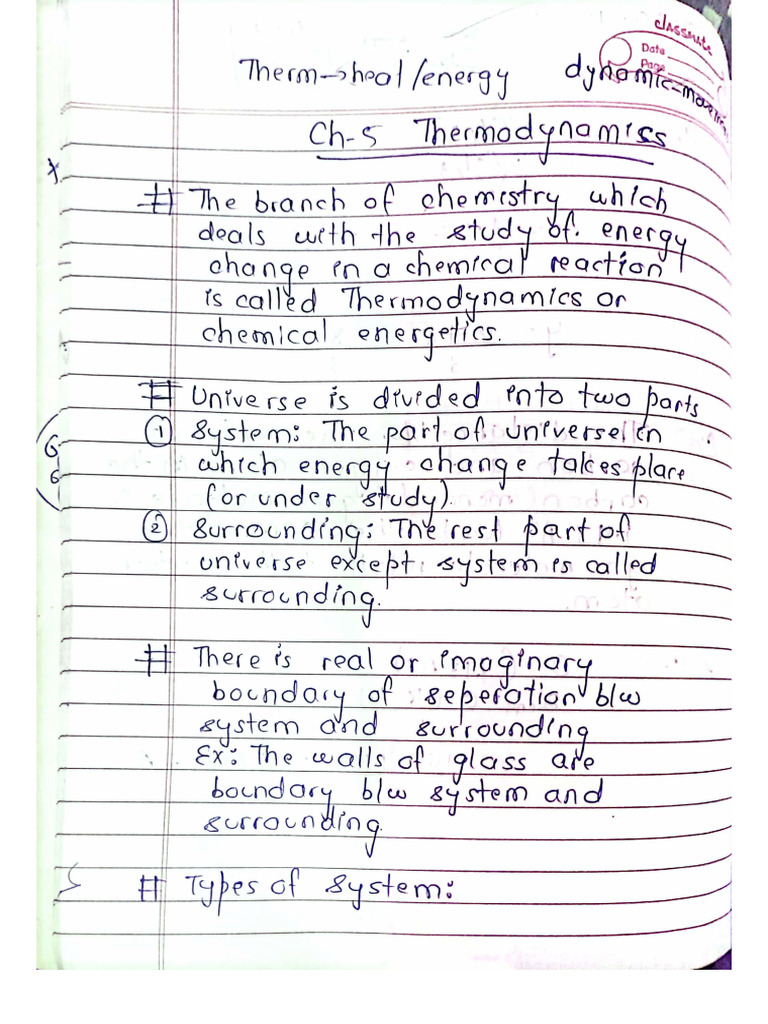 classmate
Date
Page
Therm→heat/energy dynamic-
Ch-5 Thermodynamiss
# The branch of chemistry which
deals with the study of. energy
change in a chemical reaction
is called Thermodynamics or
chemical energetics.
# Universe is divided into two parts
① System: The part of universe in
which energy change takes place
(or under study)
② Surrounding: The rest part of
universe except system is called
surrounding.
# There is real or imaginary
boundary of seperation b/w
system and surrounding
Ex: The walls of glass are
boundary b/w system and
surrounding.
# Types of System: